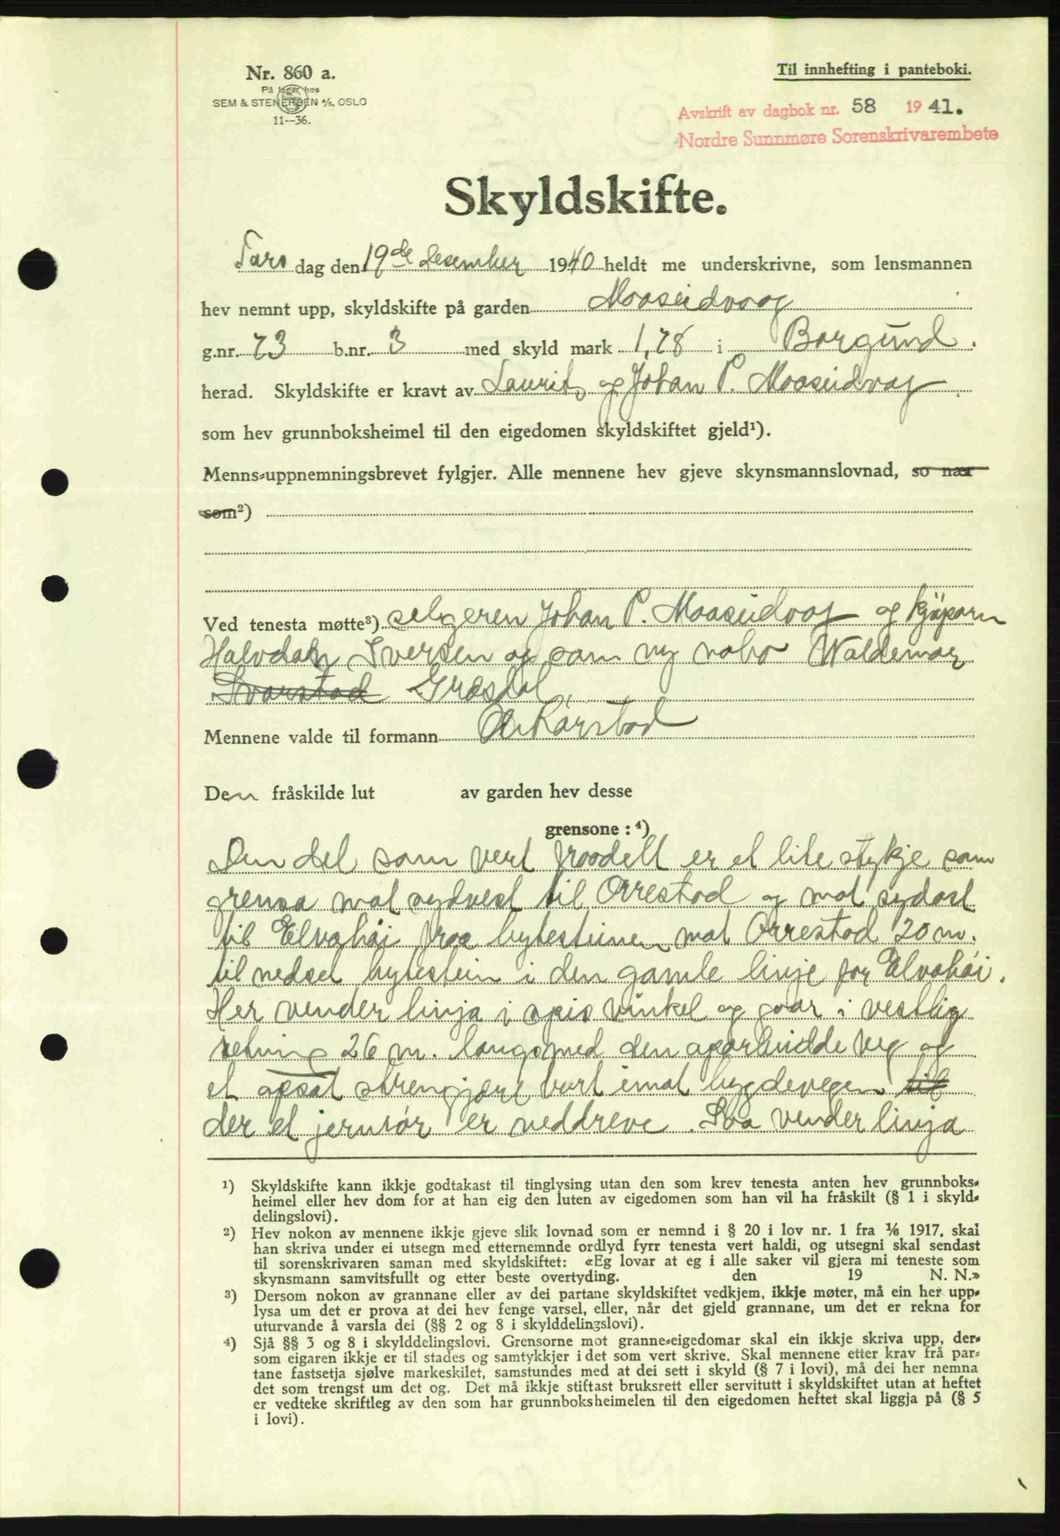 Nr. 860 a.
På lager hos
SEM & STENERSEN A/S, OSLO
11—36.
Til innhefting i panteboki.
Avskrift av dagbok nr. 58 1941.
Nordre Sunnmøre Sorenskrivarembete
Skyldskifte.
Tors dag den 19de desember 1940 heldt me underskrivne, som lensmannen
hev nemnt upp, skyldskifte på garden Moaseidvaag
g.nr. 73 b.nr. 3 med skyld mark 1,78 i Borgund.
herad. Skyldskifte er kravt av Laurits og Johan P. Moaseidvag
som hev grunnboksheimel til den eigedomen skyldskiftet gjeld¹).
Menns-uppnemningsbrevet fylgjer. Alle mennene hev gjeve skynsmannslovnad, so nær
som²)
Ved tenesta møtte³) selgeren Johan P. Moaseidvag og kjøparn
Halvdan Iversen og som ny nabo Waldemar
Græsdal,
Mennene valde til formann Kårstad
Den fråskilde lut av garden hev desse
grensone : ⁴)
Den del som vert fraadelt er et lite stykje som
grensa mot sydvest til Orrestad og mot sydost
til Elvahøi fraa bytesteinen mot Orrestad 20 m.
til nedset bytestein i den gamle linje for Elvahøi.
Her vender linja i spis vinkel og gaar i vestlig
retning 26 m. langsmed den oparbeidde veg og
et opsat strengjære bort imot bygdevegen til
der et jernrør er neddreve. Saa vender linja
¹) Skyldskifte kann ikkje godtakast til tinglysing utan den som krev tenesta anten hev grunnboks-
heimel eller hev dom for at han eig den luten av eigedomen som han vil ha fråskilt (§ 1 i skyld-
delingslovi).
²) Hev nokon av mennene ikkje gjeve slik lovnad som er nemnd i § 20 i lov nr. 1 fra 1/6 1917, skal
han skriva under ei utsegn med etternemnde ordlyd fyrr tenesta vert haldi, og utsegni skal sendast
til sorenskrivaren saman med skyldskiftet: «Eg lovar at eg i alle saker vil gjera mi teneste som
skynsmann samvitsfullt og etter beste overtyding. den 19 N. N.»
³) Dersom nokon av grannane eller av dei partane skyldskiftet vedkjem, ikkje møter, må ein her upp-
lysa um det er prova at dei hev fenge varsel, eller, når det gjeld grannane, um det er rekna for
uturvande å varsla dei (§§ 2 og 8 i skylddelingslovi).
⁴) Sjå §§ 3 og 8 i skylddelingslovi. Grensorne mot granne-eigedomar skal ein ikkje skriva upp, der-
som eigaren ikkje er til stades og samtykkjer i det som vert skrive. Skal mennene etter krav frå par-
tane fastsetja sjølve markeskilet, samstundes med at dei sett i skyld (§ 7 i lovi), må dei her nemna
det som trengst um det og. Det må ikkje stiftast bruksrett eller servitutt i skyldskiftet utan at heftet
er vedteke skriftleg av den som har grunnboksheimelen til den eigedomen heftet skal liggja på (§ 5
i lovi).